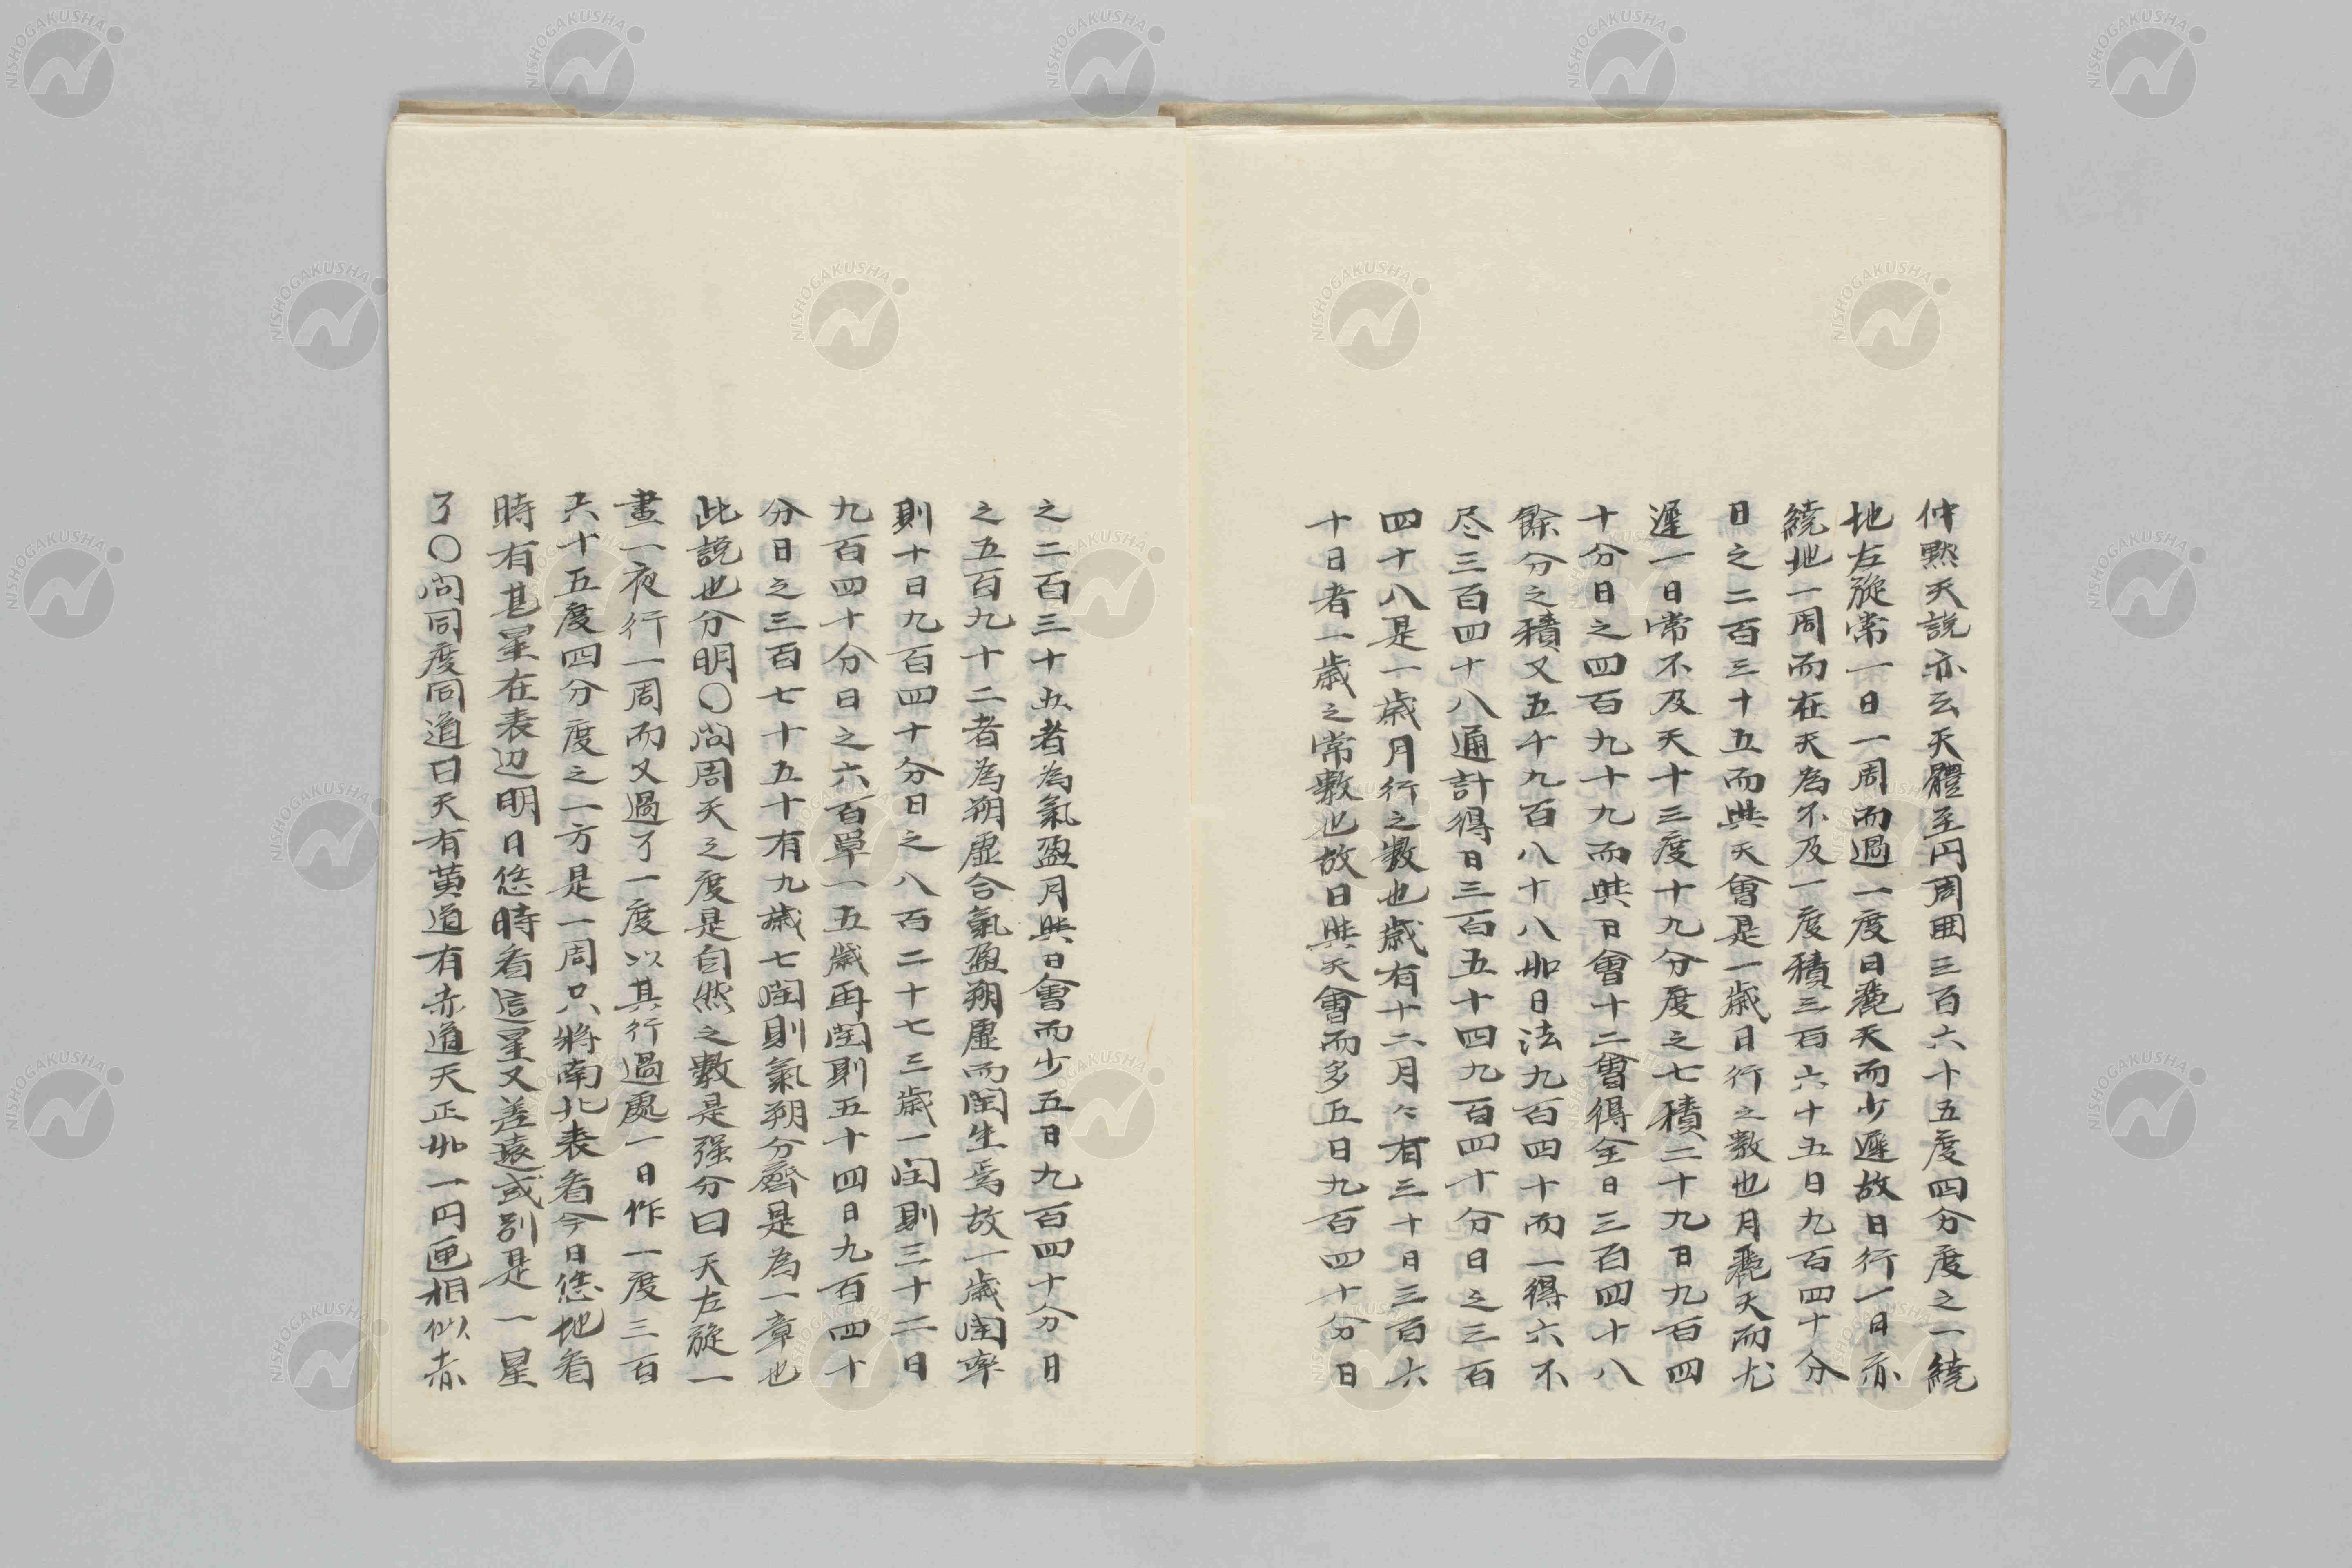 仲黙天説亦云天體至円周囲三百六十五度四分度之一繞
地左旋常一日一周而過一度日麗天而少遲故日行一日亦
繞地一周而在天為不及一度積三百六十五日九百四十分
日之二百三十五而與天會是一歳日行之數也月麗天而尤
遲一日常不及天十三度十九分度之七積二十九日九百四
十分日之四百九十九而與日會十二會得全日三百四十八
餘分之積又五千九百八十八如日法九百四十而一得六不
尽三百四十八通計得日三百五十四九百四十分日之三百
四十八是一歳月行之數也歳有十二月〻有三十日三百六
十日者一歳之常數也故日與天會而多五日九百四十分日
之二百三十五者為氣盈月與日會而少五日九百四十分日
之五百九十二者為朔虚合氣盈朔虚而閏生焉故一歳閏率
則十日九百四十分日之八百二十七三歳一閏則三十二日
九百四十分日之六百單一五歳再閏則五十四日九百四十
分日之三百七十五十有九歳七閏則氣朔分齊是為一章也
此説也分明〇問周天之度是自然之數是强分曰天左旋一
晝一夜行一周而又過了一度以其行過處一日作一度三百
六十五度四分度之一方是一周只將南北表看今日恁地看
時有甚星在表辺明日恁時看這星又差遠或別是一星
了〇問同度同道曰天有黄道有赤道天正如一円匣相似赤
NISHOGAKUSHA